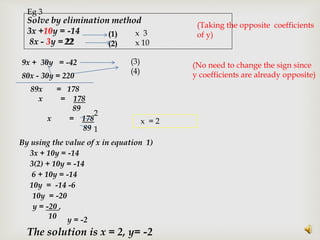 Eg 3
Solve by elimination method
3x +10y = -14 (1) x 3
8x - 3y = 22 (2) x 10
(Taking the opposite coefficients
of y)
9x + 30y = -42 (3)
80x - 30y = 220 (4)
(No need to change the sign since
y coefficients are already opposite)
89x = 178
x = 178
89
x = 178 2
89 1
x = 2
By using the value of x in equation 1)
3x + 10y = -14
3(2) + 10y = -14
6 + 10y = -14
10y = -14 -6
10y = -20
y = -20 ,
10
y = -2
The solution is x = 2, y= -2